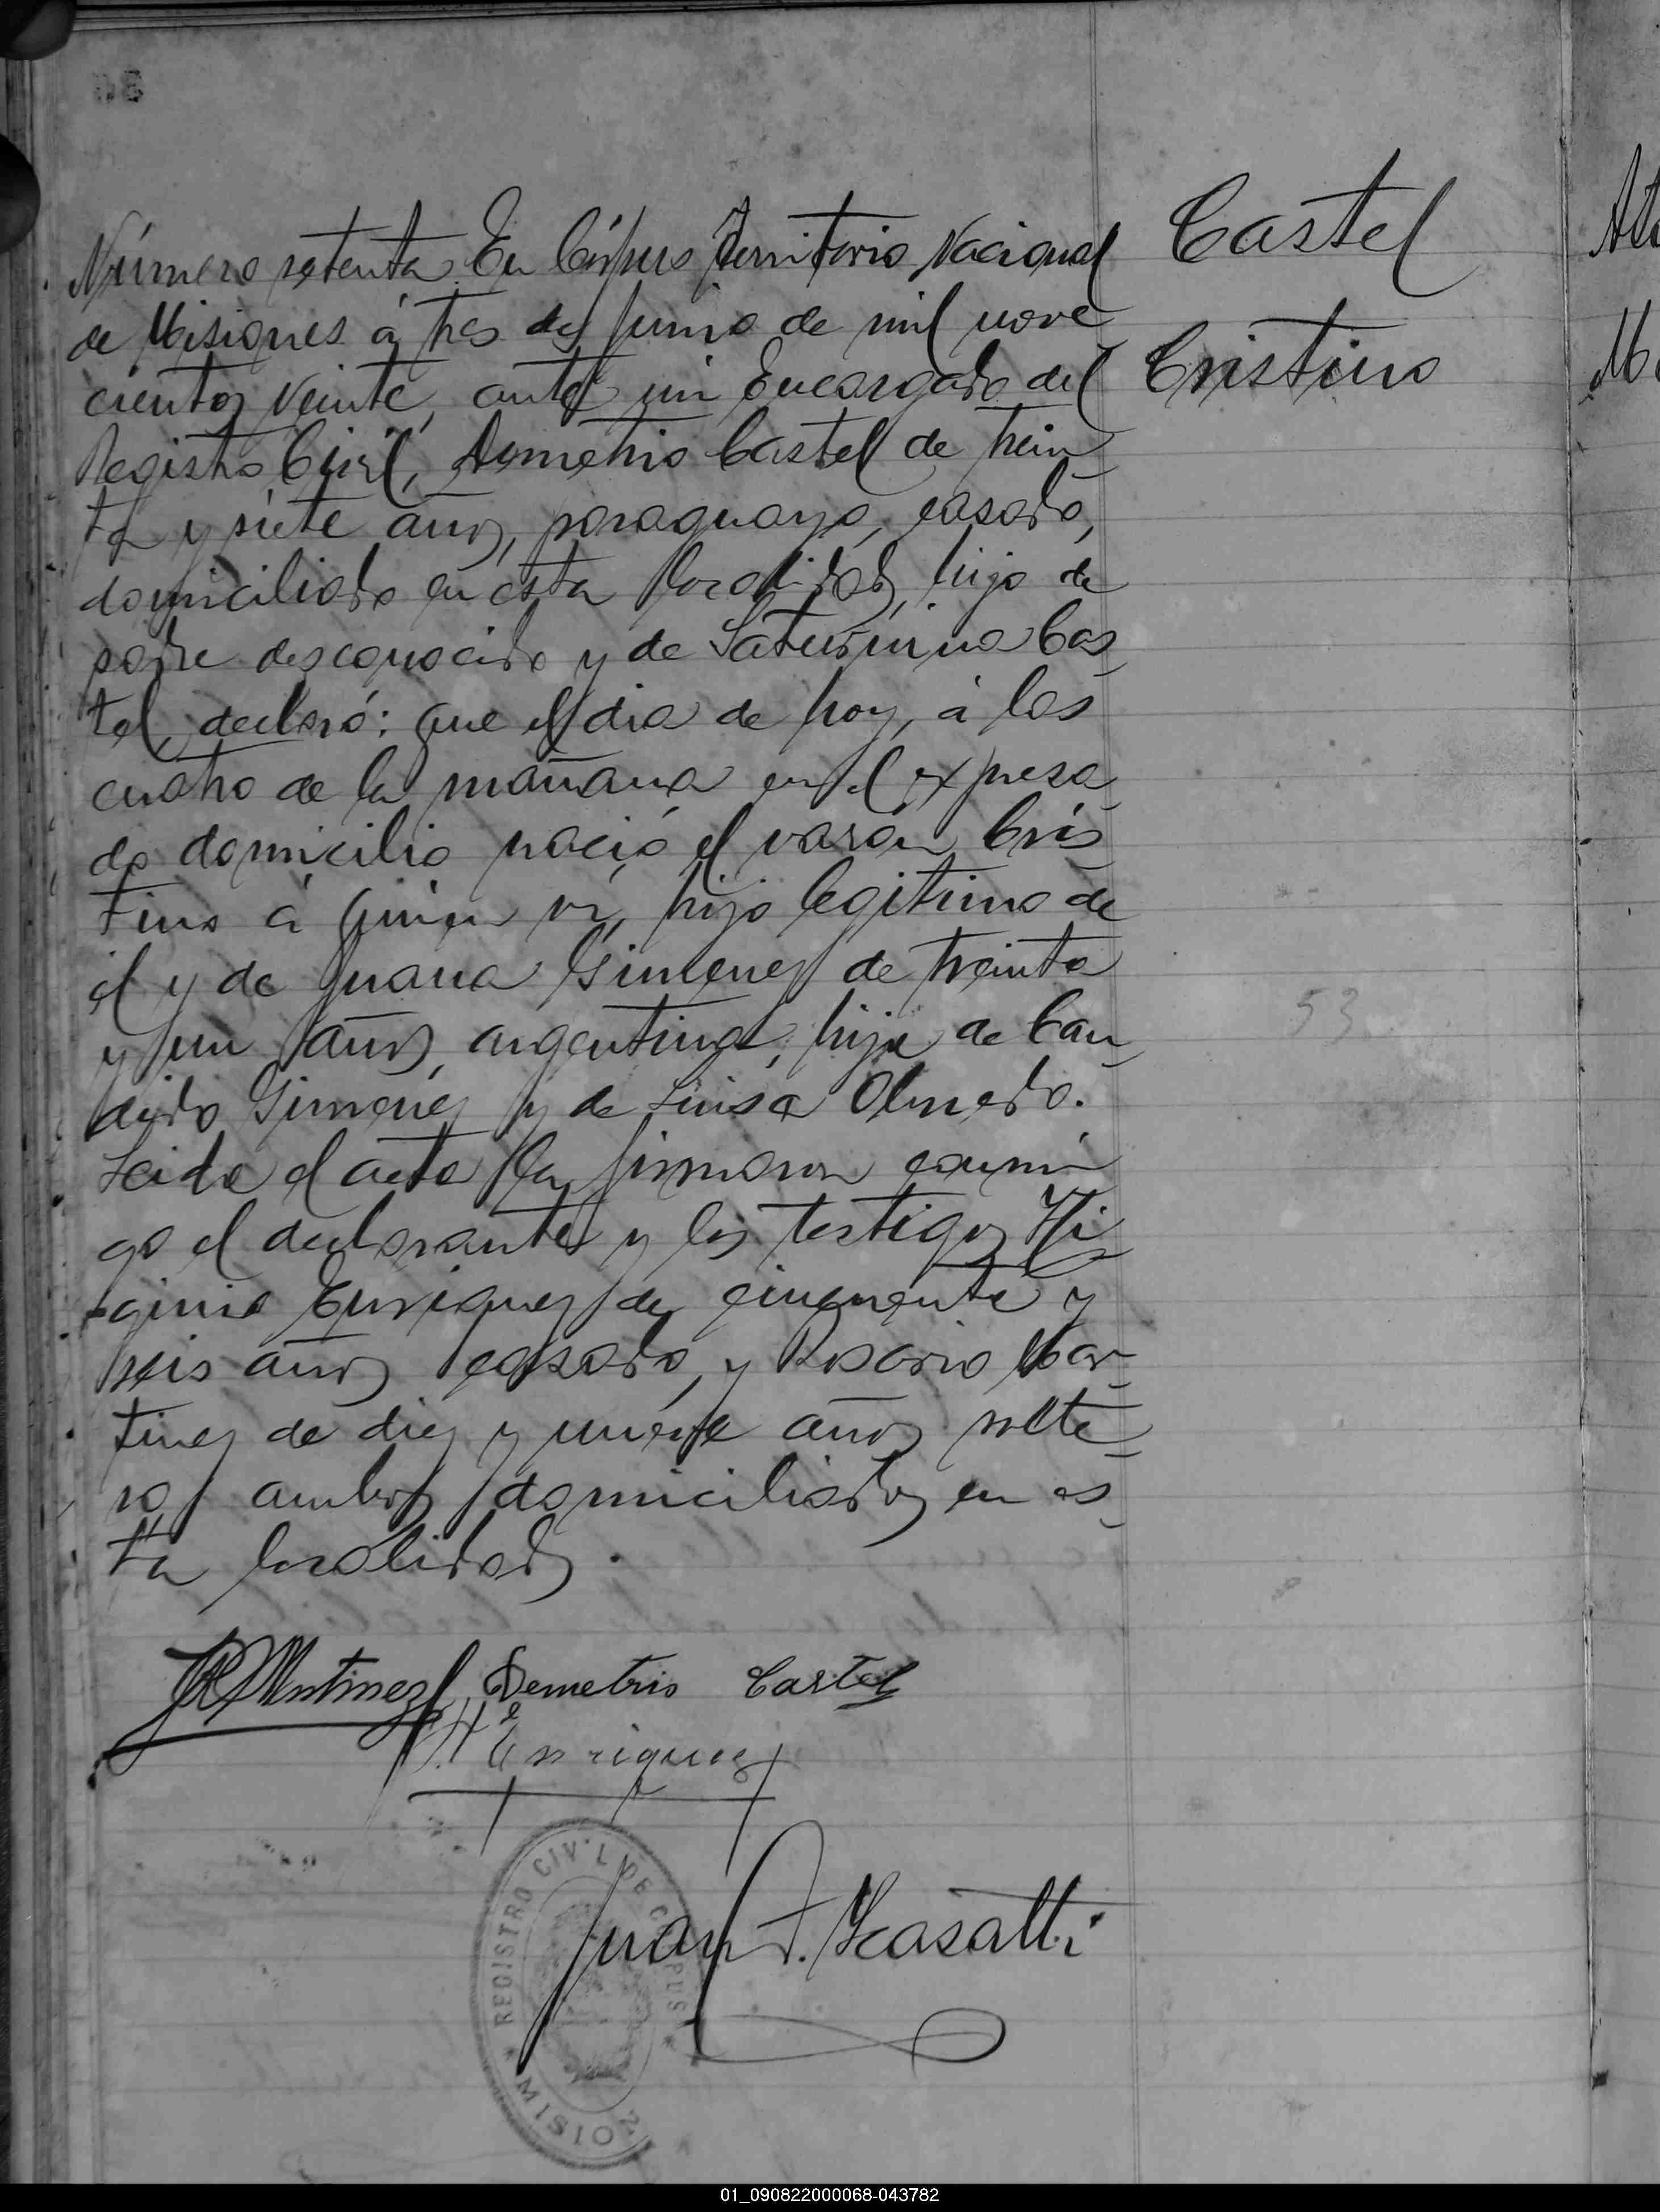 Número setenta. En Córpus Territorio Nacional
de Misiones á tres de Junio de mil nove
cientos veinte, ante mi Encargado del
Registro Civil, Demetrio Castel de trein
ta y siete años, paraguayo, casado,
domiciliado en esta localidad, hijo de
padre desconocido y de Saturnina Cas
tel, declaró: Que el dia de hoy, á las
cuatro de la mañana en el expresa
do domicilio nació el varón Cris
tino á quien vi, hijo legitimo de
él y de Juana Gimenez de treinta
y un años, argentina, hija de Can
dido Gimenez y de Luisa Olmedo.
Leida el acta la firmaron conmi
go el declarante y los testigos Hi
ginio Enriquez de cincuenta y
seis años casado, y Rosario Mar
tinez de diez y nueve años solte
ro, ambos domiciliados en es
ta localidad.
Castel
Cristino
53
Martinez Demetrio Castel
H Enriquez
REGISTRO CIVIL DE CORPUS
MISIO
Juan F. Casatti
01_090822000068-043782